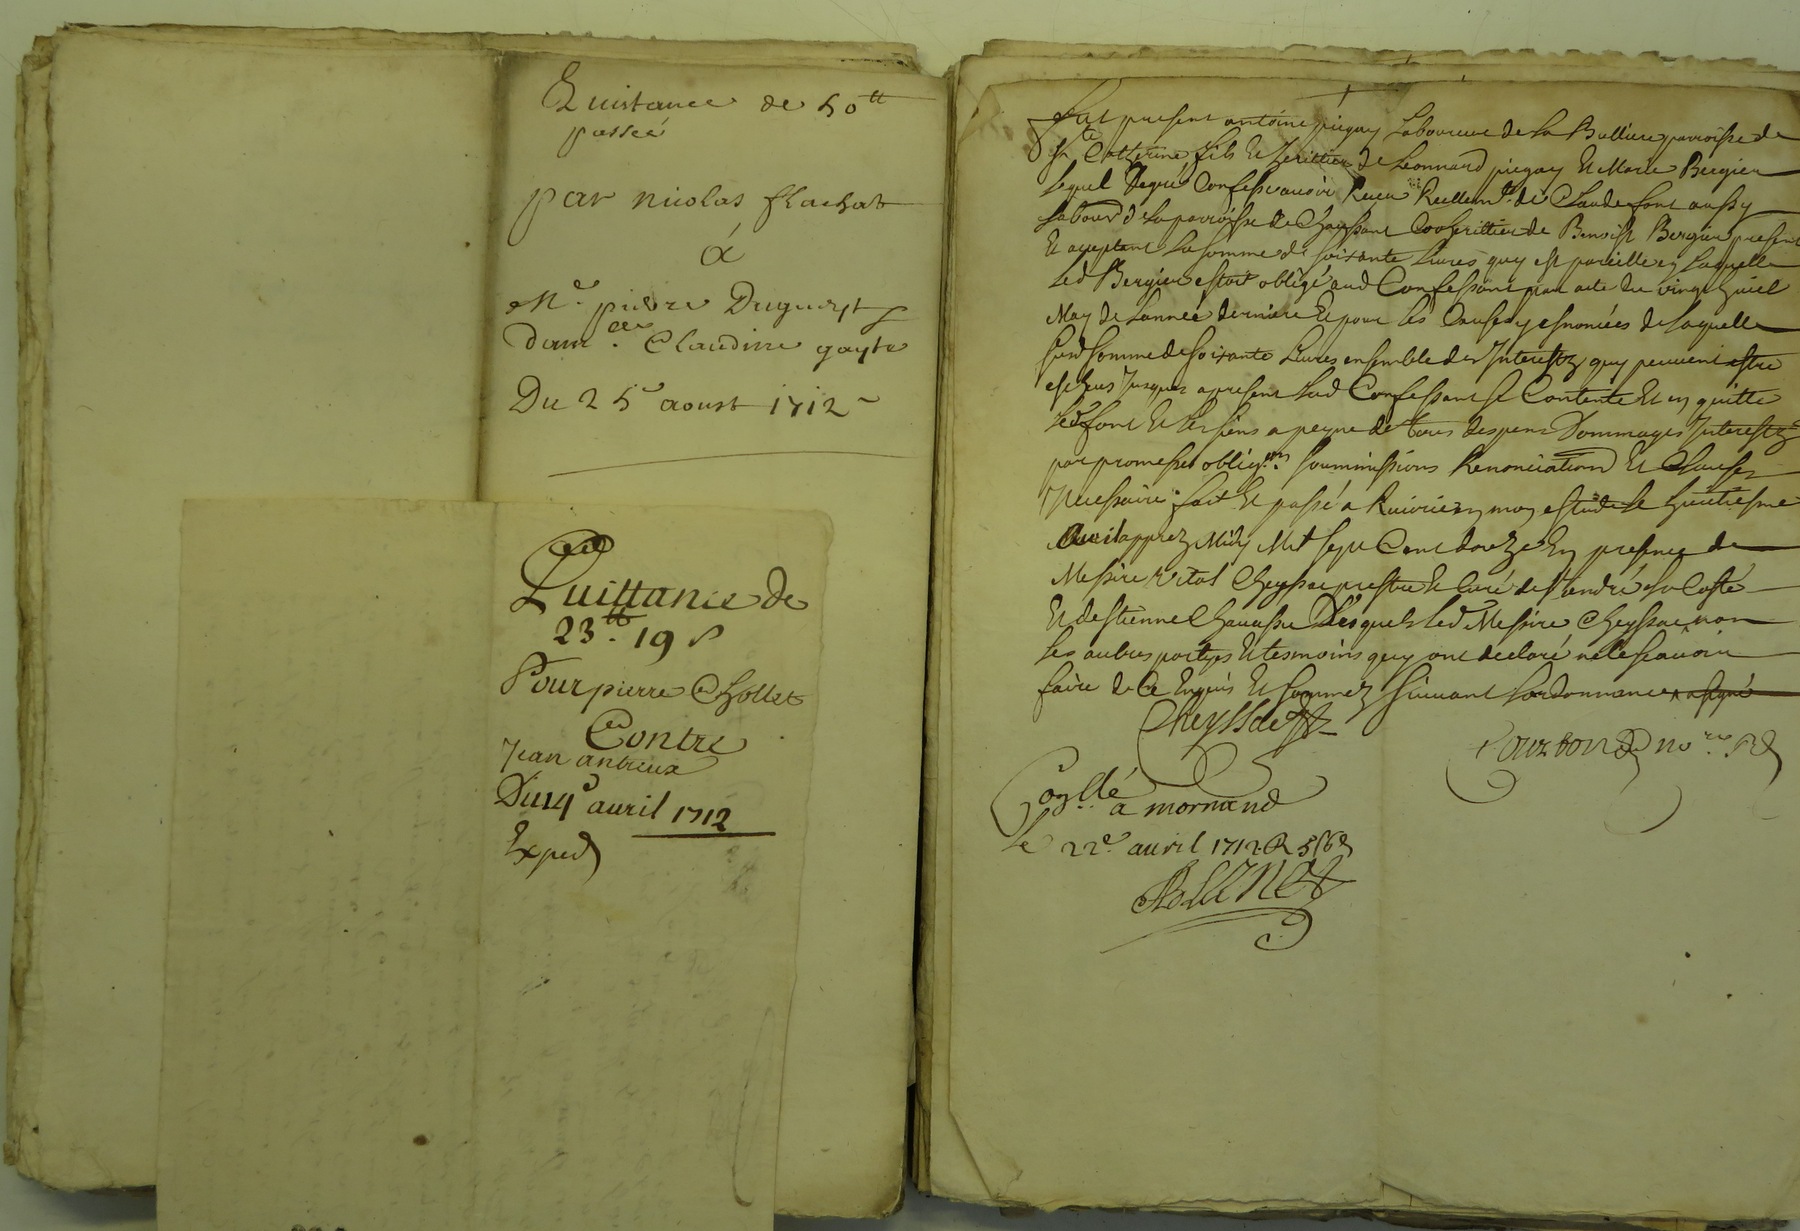 Quistance de 50tt
passée
par nicolas flachat
à
Me pierre Dugueyt
damelle Claudine gayte
Du 25e aoust 1712
Quittance de
23tt 19 s
Pour pierre Chollet
Contre
Jean antreux
Du 14e auril 1712
Exped
fut present antoine pigay Laboureur de La Bulliere parroisse de
ste Catherine fils et heritier de Leonnard pigay et Marie Bergier
Lequel degré Confesse auoir Receu Reellemt de Claude font aussy
Labourr de La parroisse de Chaussant Cooherittier de Benoist Bergier present
et aceptant La somme de soixante Liures quy est pareille en Laquelle
Led Bergier estoit obligé aud Confessant par acte du vingt huict
May de Lannée derniere et pour les Causes y esnoncées de Laquelle
susd somme de soixante Liures ensemble des Interestz quy peuuent estre
escheus Jusques a present Led Confessant se Contente et en quitte
Led font et les siens a peyne de tous despens Dommages Interestz
par promesses obligons soummissions Renonciations et Clauses
Necessaire fait et passé a Riuirie en mon estude le huictiesme
Auril apprez Midy Mil sept Cent douze en presence de
Messire vital Cheyssac prestre et Curé de st andré La Coste
et destienne Chauassu Desquels led Messire Cheyssac non
les autres partyes et tesmoins quy ont declaré ne le scauoir
faire de Ce Enquis et sommez suiuant Lordonnance
Cheyssac
Pourbon nore Rd
Conllé
a mornand
le 22e auril 1712 R 5s 6d